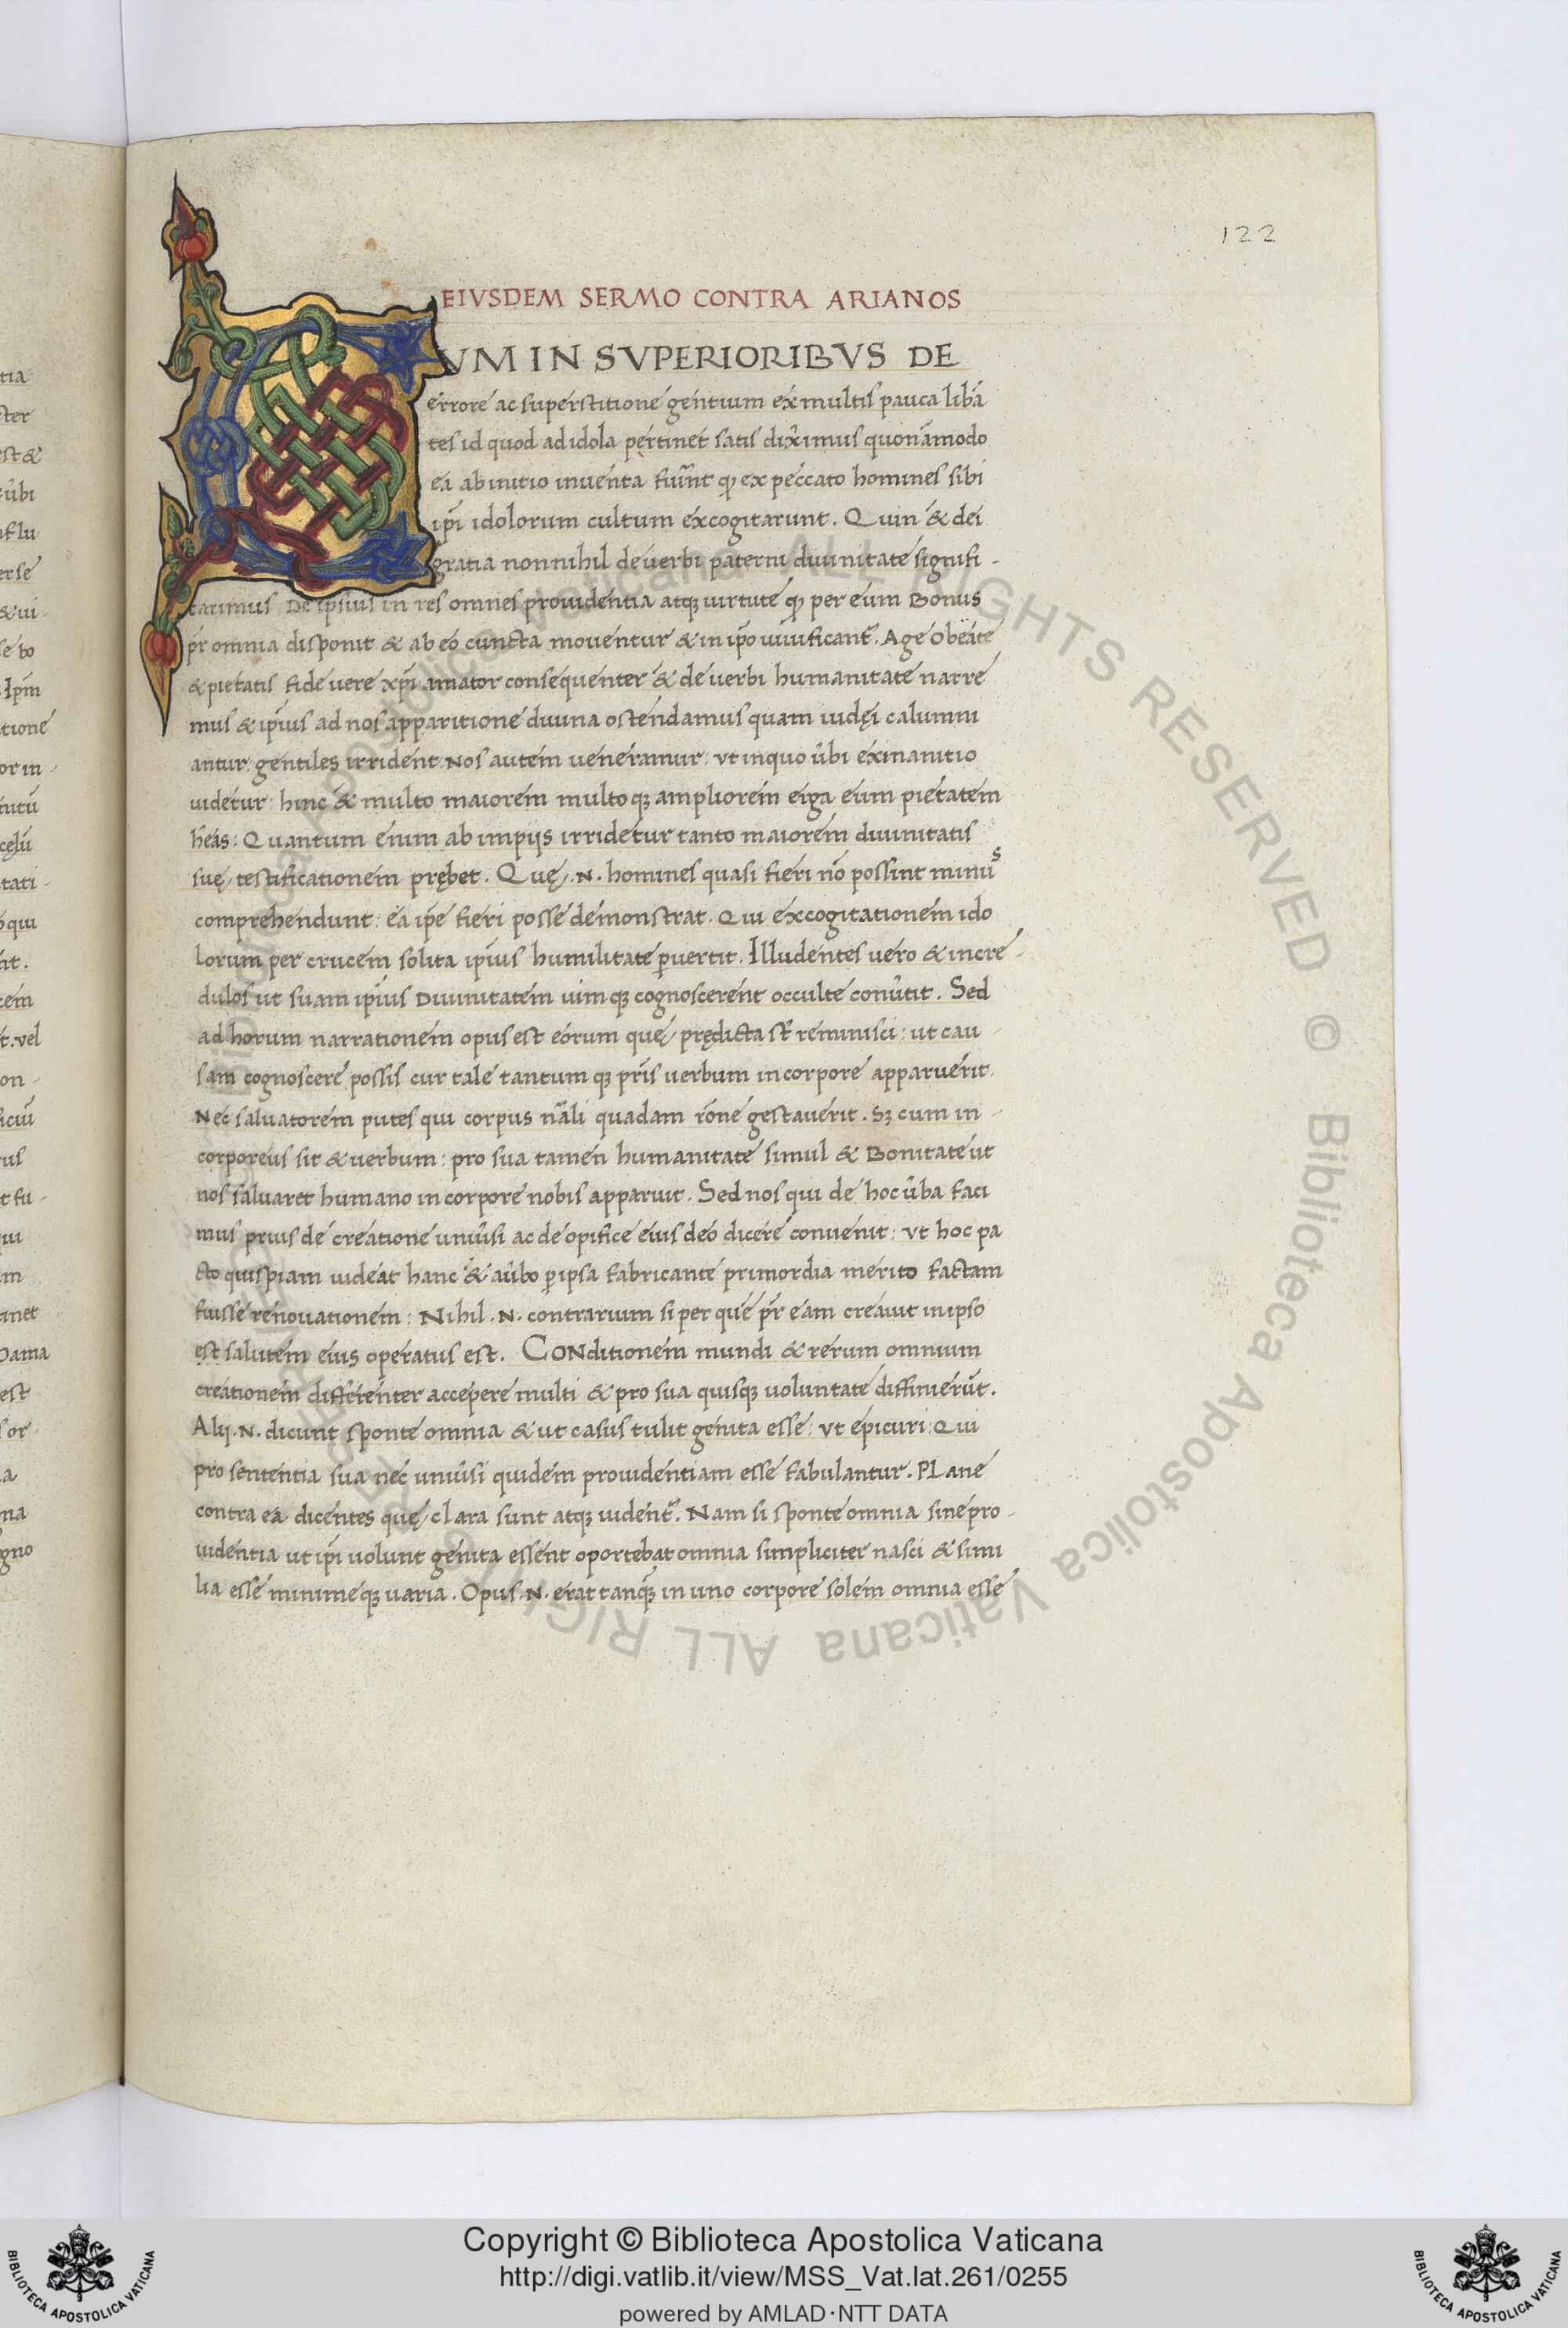 122
EIVSDEM SERMO CONTRA ARIANOS
CVM IN SVPERIORIBVS DE
errore ac superstitione gentium ex multis pauca libā
tes id quod ad idola pertinet satis diximus quonāmodo
ea ab initio inventa fuer̄nt ꝙ ex peccato homines sibi
ip̄i idolorum cultum excogitarunt. Quin & dei
gratia nonnihil de verbi paterni divinitate signifi-
carimus De ipsius in res omnes providentia atqꝫ virtute ꝙ per eum Bonus
pr̄ omnia disponit & ab eo cuncta moventur & in ip̄o vivificant᷑. Age o beate
& pietatis fide vere xp̄i amator consequenter & de verbi humanitate narre
mus & ip̄ius ad nos apparitione divina ostendamus quam iudęi calumni
antur: gentiles irrident: Nos autem veneramur: vt in quo ūbi exinanitio
videtur: hinc & multo maiorem multoqꝫ ampliorem erga eum pietatem
h̄eas: Quantum enim ab impijs irridetur tanto maiorem divinitatis
suę testificationem prębet. Quę .N. homines quasi fieri nō possint minus
comprehendunt: ea ip̄e fieri posse demonstrat. Qui excogitationem ido
lorum per crucem solita ip̄ius humilitate ꝑvertit. Illudentes vero & incre-
dulos ut suam ip̄ius Divinitatem vimqꝫ cognoscerent occulte conūtit. Sed
ad horum narrationem opus est eorum quę prędicta sūt reminisci: ut cau-
sam cognoscere possis cur tale tantumqꝫ pr̄is verbum in corpore apparuerit.
Nec salvatorem putes qui corpus nāli quadam rōne gestaverit. Sꝫ cum in-
corporeus sit & verbum: pro sua tamen humanitate simul & Bonitate ut
nos salvaret humano in corpore nobis apparuit. Sed nos qui de hoc ūba faci
mus prius de creatione univ̄si ac de opifice eius deo dicere convenit: vt hoc pa
cto quispiam videat hanc & a ūbo ꝑ ipsa fabricante primordia merito factam
fuisse renovationem: Nihil .N. contrarium si per quē pr̄ eam creavit in ipso
est salutem eius operatus est. CONditionem mundi & rerum omnium
creationem differenter accepere multi & pro sua quisqꝫ voluntate diffinierūt.
Alij .N. dicunt sponte omnia & ut casus tulit genita esse: vt epicuri: Qui
pro sententia sua nec univ̄si quidem providentiam esse fabulantur. PLane
contra ea dicentes quę clara sunt atqꝫ vident᷑. Nam si sponte omnia sine pro-
videntia ut ip̄i volunt genita essent oportebat omnia simpliciter nasci & simi
lia esse minimeqꝫ varia. Opus .N. erat tanqꝫ̄ in uno corpore solem omnia esse
Copyright © Biblioteca Apostolica Vaticana
http://digi.vatlib.it/view/MSS_Vat.lat.261/0255
powered by AMLAD·NTT DATA
BIBLIOTECA APOSTOLICA VATICANA
BIBLIOTECA APOSTOLICA VATICANA